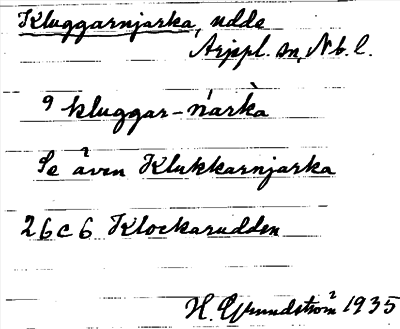 Kluggarnjarka, udde
Arjpl. sn, Nb. l.
kluggar-ńarkà
Se även Klukkarnjarka
26c6 Klockarudden
H. Grundström 1935